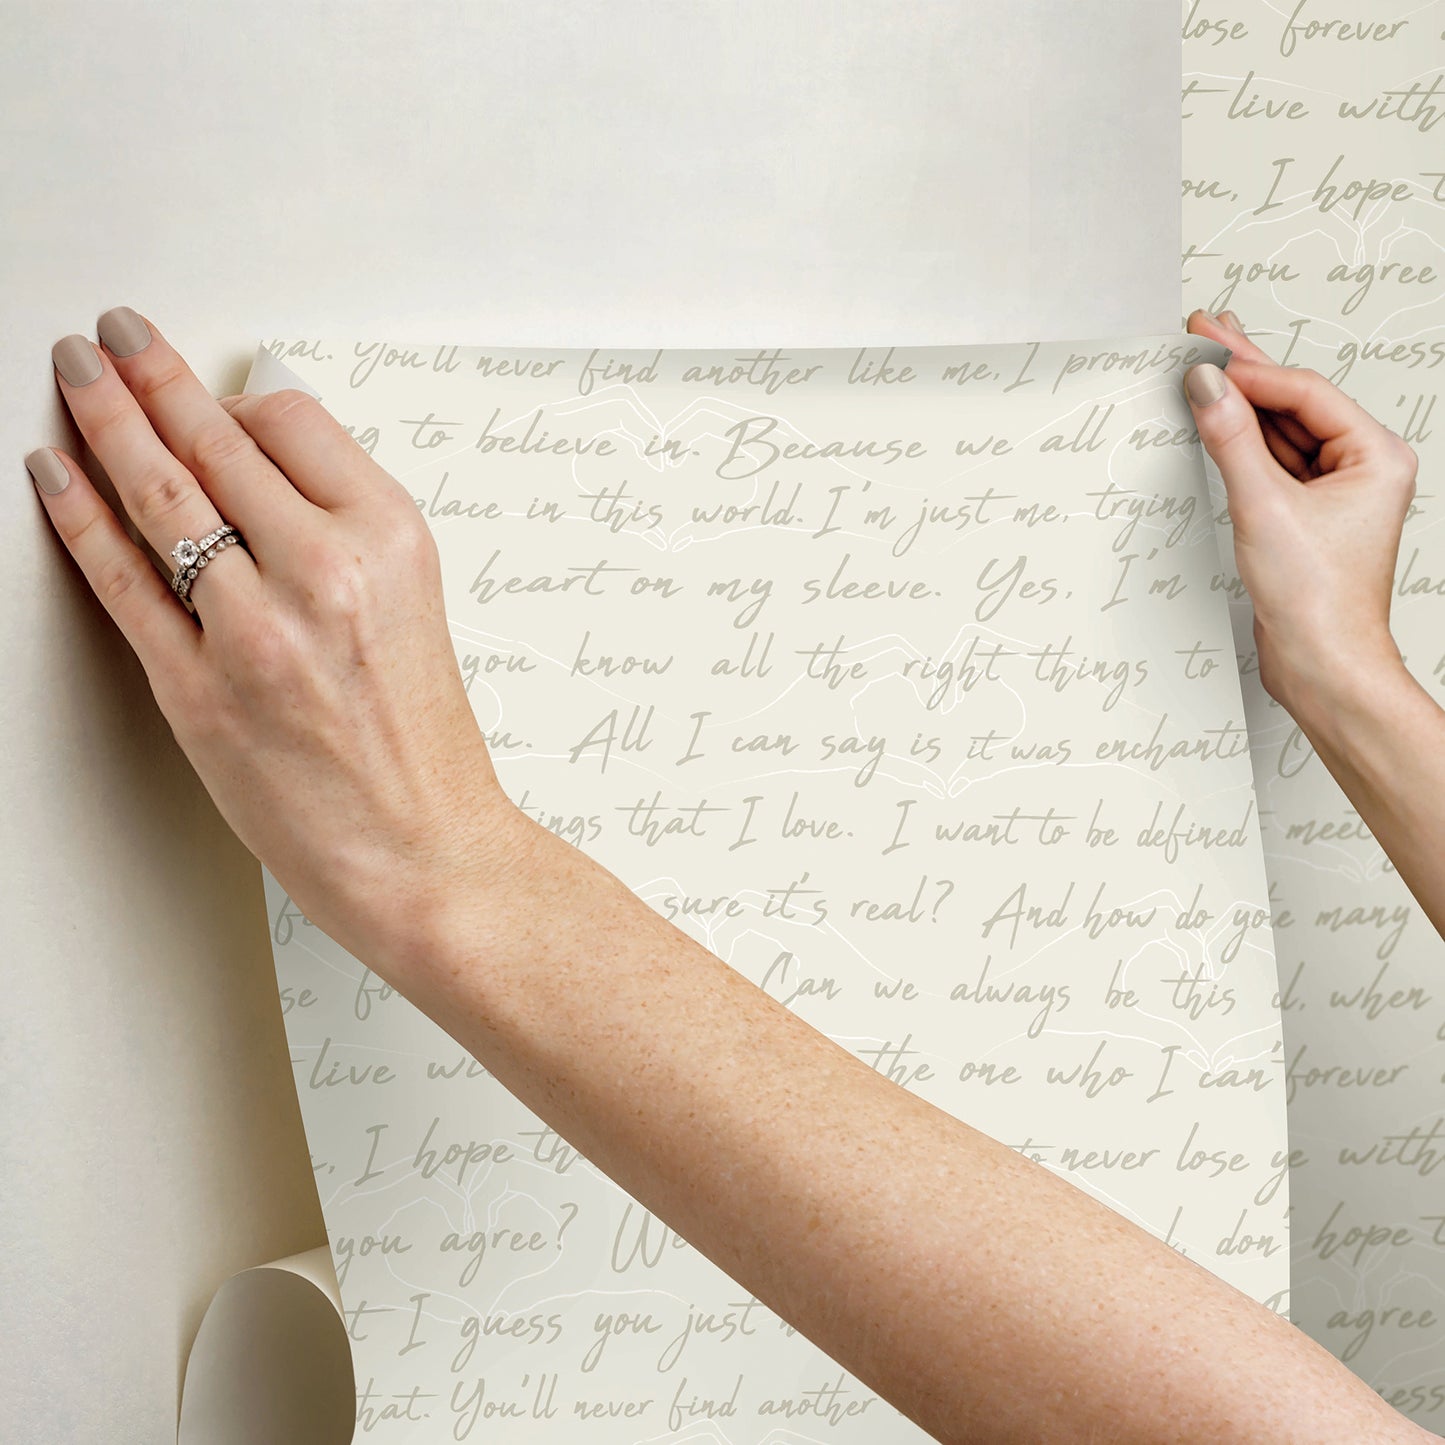 lose forever
live with
I hope
you agree
I guess
You'll never find another like me. I promise
to believe in. Because we all need
place in this world. I'm just me, trying
heart on my sleeve. Yes, I'm
you know all the right things to
All I can say is it was enchanting
things that I love. I want to be defined meet
sure it's real? And how do you many
Can we always be this when
live the one who I can't forever
I hope to never lose with
you agree? We don't hope
I guess you just agree
that. You'll never find another